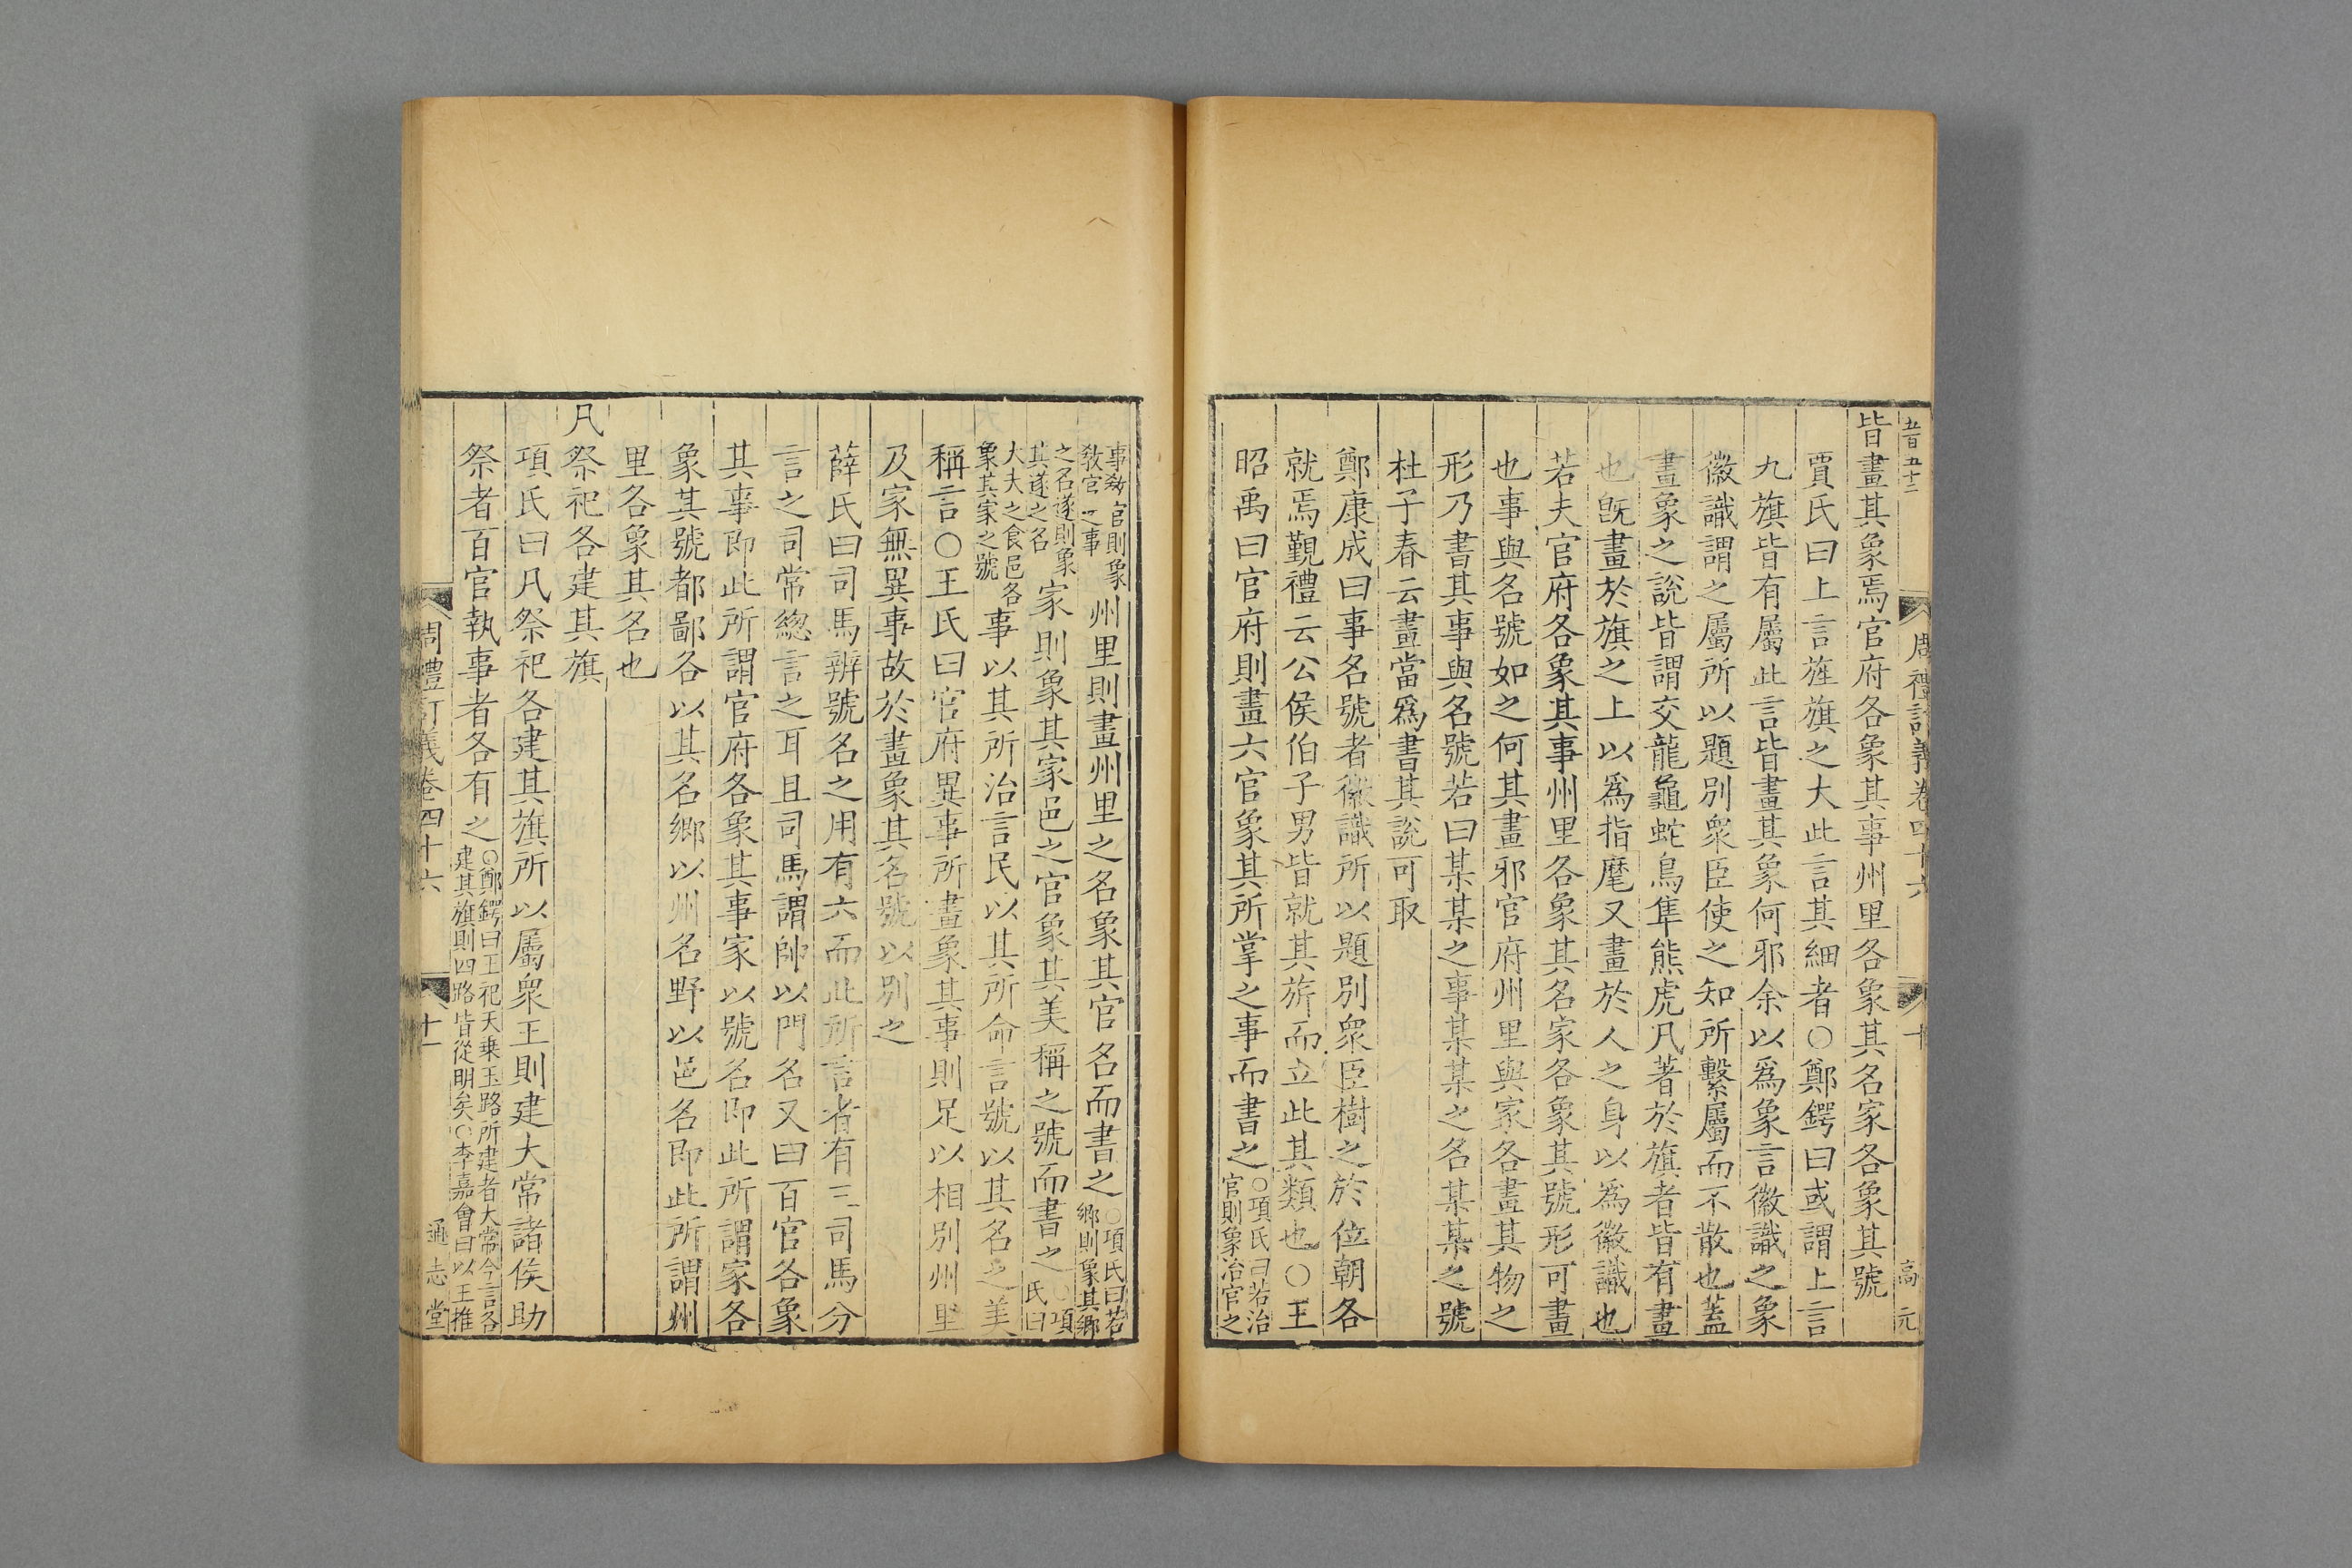 五百五十二
周禮訂義卷四十六
十
高元
皆畫其象焉官府各象其事州里各象其名家各象其號
賈氏曰上言旌旗之大此言其細者○鄭鍔曰或謂上言
九旗皆有屬此言皆畫其象何邪余以爲象言徽識之象
徽識謂之屬所以題別衆臣使之知所繫屬而不散也蓋
畫象之說皆謂交龍龜蛇鳥隼熊虎凡著於旗者皆有畫
也旣畫於旗之上以爲指麾又畫於人之身以爲徽識也
若夫官府各象其事州里各象其名家各象其號形可畫
也事與名號如之何其畫邪官府州里與家各畫其物之
形乃書其事與名號若曰某某之事某某之名某某之號
杜子春云畫當爲書其說可取
鄭康成曰事名號者徽識所以題別衆臣樹之於位朝各
就焉覲禮云公侯伯子男皆就其旂而立此其類也○王
昭禹曰官府則畫六官象其所掌之事而書之○項氏曰若治官則象治官之
事敎官則象敎官之事州里則畫州里之名象其官名而書之○項氏曰若鄉則象其鄉
之名遂則象其遂之名家則象其家邑之官象其美稱之號而書之○項氏曰
大夫之食邑各象其家之號事以其所治言民以其所命言號以其名之美
稱言○王氏曰官府異事所畫象其事則足以相別州里
及家無異事故於畫象其名號以別之
薛氏曰司馬辨號名之用有六而此所言者有三司馬分
言之司常總言之耳且司馬謂帥以門名又曰百官各象
其事即此所謂官府各象其事家以號名即此所謂家各
象其號都鄙各以其名鄉以州名野以邑名即此所謂州
里各象其名也
凡祭祀各建其旗
項氏曰凡祭祀各建其旗所以屬衆王則建大常諸侯助
祭者百官執事者各有之○鄭鍔曰王祀天乗玉路所建者大常今言各建其旗則四路皆從明矣○李嘉會曰以王推
周禮訂義卷四十六
十一
通志堂